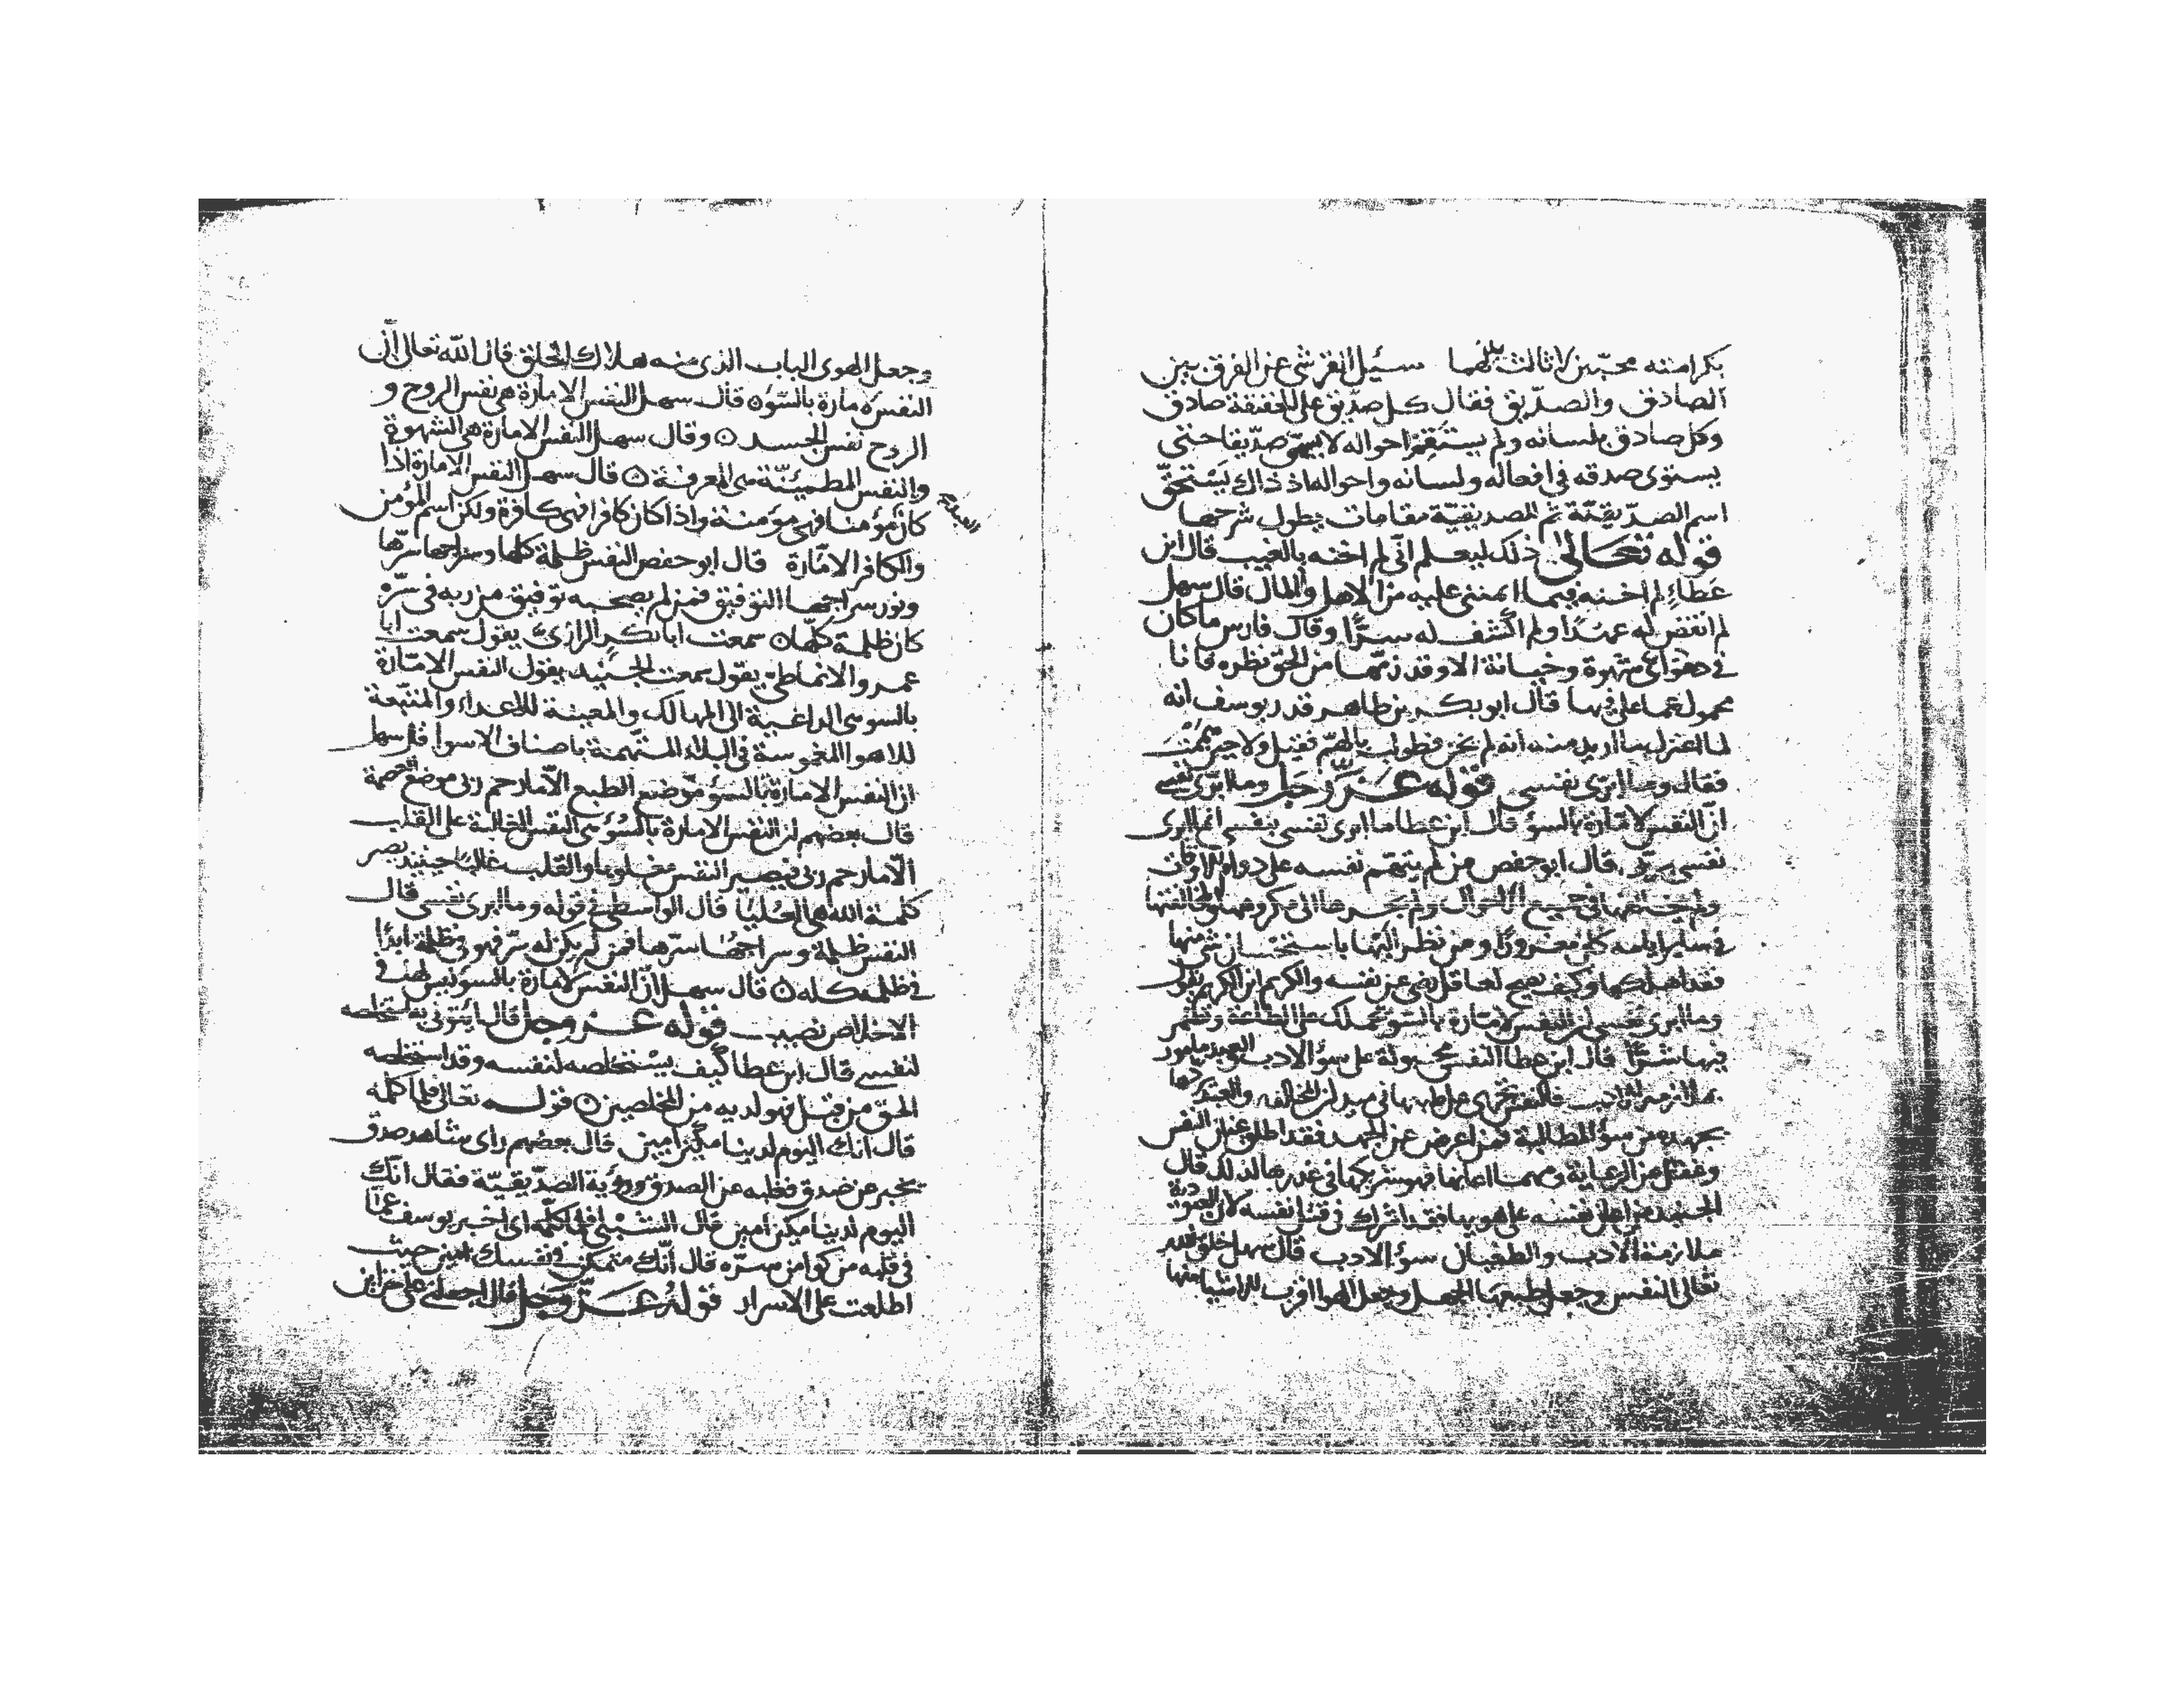 بكرامته محبّين لا ثالث لهما سئل القرشى عن الفرق بين
الصادق والصدّيق فقال كل صدّيق على الحقيقة صادق
وكل صادق بلسانه ولم يستقم احواله لا يسمّى صدّيقا حتى
يستوى صدقه فى افعاله ولسانه واحواله اذ ذاك يَسْتحقّ
اسم الصدّيقيّة ثم للصديقيّة مقامات يطول شرحها
قوله تعالى ذلك ليعلم انّى لم اخنه بالغيب قال ابن
عَطاءٍ لم اخنه فيما ائمننى عليه من الاهل والمال قال سهل
لم انقض له عهدًا ولم اكشف له سترًا وقال فارس ما كان
فى دعواى شهوة وخيانة الا وقد زمّها من الحق نظره فانا
محمول عما على فيها قال ابو بكر بن طاهر قدر يوسف انه
لما اعتزل بما اريد منه انه لم يخن فطولب بالهمّ فقيل ولا حين هممْتَ
فقال وما ابرّى نفسى قوله عَزّ وَجَل وما ابرّى نفسى
انّ النفس لامّارة بالسوُ قال ابن عطا ما ابرى نفسى بنفسى انما ابرى
نفسى بربّى قال ابو حفص من لم يتهم نفسه على دوام الاوقات
ولم يخالفها فى جميع الاحوال ولم يجرها الى مكروهها
فى ساير ايامه كان مغرورًا ومن نظر اليها باستحسان شى منها
فقد اهلكها وكيف يصح لعاقل رضى عن نفسه والكريم ابن الكريم يقول
وما ابرى نفسى ان النفس لامّارة بالسّو تحملك على الطاعة وتضمر
فيها شرًّا قال ابن عطا النفس مجبولة على سوُ الادب والعبد مامور
بملازمة الادب فالنفس تجرى على طبعها فى ميدان المخالفة والعبد يردها
بجهده من سوُ المطالبة فمن اعرض عن الجهد فقد اطلق عنان النفس
وغفل عن الرعاية ومهما اعانها فهو شريكها فى لذلك قال
الجنيد من اعان نفسه على هويها فقد اشرك فى قتل نفسه لان العبودية
ملازمة الادب والطغيان سوُ الادب قال سهل خلق الله
تعالى النفس وجعل طبعها الجهل وجعل الهوا اقرب الاشيا منها
وجعل الهوى الباب الذى منه هلاك الخلق قال الله تعالى انّ
النفس لامارة بالسّوء قال سهل النفس الامارة هى نفس الروح و
الروح نفس الجسد وقال سهل النفس الامارة هى الشهوة
والنفس المطمئنّة هى المعرفة قال سهل النفس الامارة اذا
كان مؤمنا فهى مؤمنة واذا كان كافرا فهى كافرة ولكن اسم المؤمن
والكافر الامّارة قال ابو حفص النفس ظلمة كلها وسراجها سرّها
ونور سراجها التوفيق فمن لم يصحبه توفيق من ربه فى سرّه
كان ظلمة كلّها سمعت ابا بكر الرازىّ يقول سمعت ابا
عمرو الانماطىّ يقول سمعت الجنيد يقول النفس الامّارة
بالسو هى الداعية الى المهالك والمعينة للاعداء والمتبعة
للاهوا المغموسة فى البلاء المتهمة باصناف الاسوا قال سهل
ان النفس الامارة بالسوُ موضع الطبع الّا ما رحم ربى موضع العصمة
قال بعضهم ان النفس الامارة بالسوُ هى النفس الغالبة على القلب
الّا ما رحم ربى فيصير النفس مغلوبا والقلب غالبًا حينئذ يصير
كلمة الله هى العليا قال الواسطى فى قوله وما ابرى نفسى قال
النفس ظلمة وسراجها سرّها فمن لم يكن له سرّ فهو فى ظلمة ابدًا
فى ظلمه كله قال سهل انّ النفس لامّارة بالسوُ ليس لها فى
الاخلاص نصيب قوله عز وجل قال ائتونى به استخلصه
لنفسى قال ابن عطا كيف يستخلصه لنفسه وقد استخلصه
الحقّ من قبل فهو لديه من المخلصين قوله تعالى فلما كلّمه
قال انك اليوم لدينا مكين امين قال بعضهم راى مشاهد صدق
يخبر عن صدق فغلبه عن الصدق ورؤية الصدّيقيّة فقال انّك
اليوم لدينا مكين امين قال الشبلى فلما كلّمه اى اخبر يوسف عمّا
فى قلبه من كوامن سرّه قال انّك متمكن ونفسك امين حيث
اطلعت على الاسرار قولهُ عَزّ وَجل قال اجعلنى على خزاين